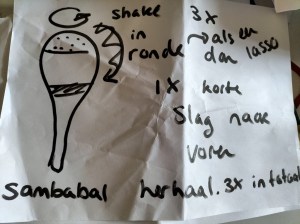 shake 3x
in ronde → als een
dan lasso
1x korte
Slag naar
voren
Sambabal herhaal. 3x in totaal